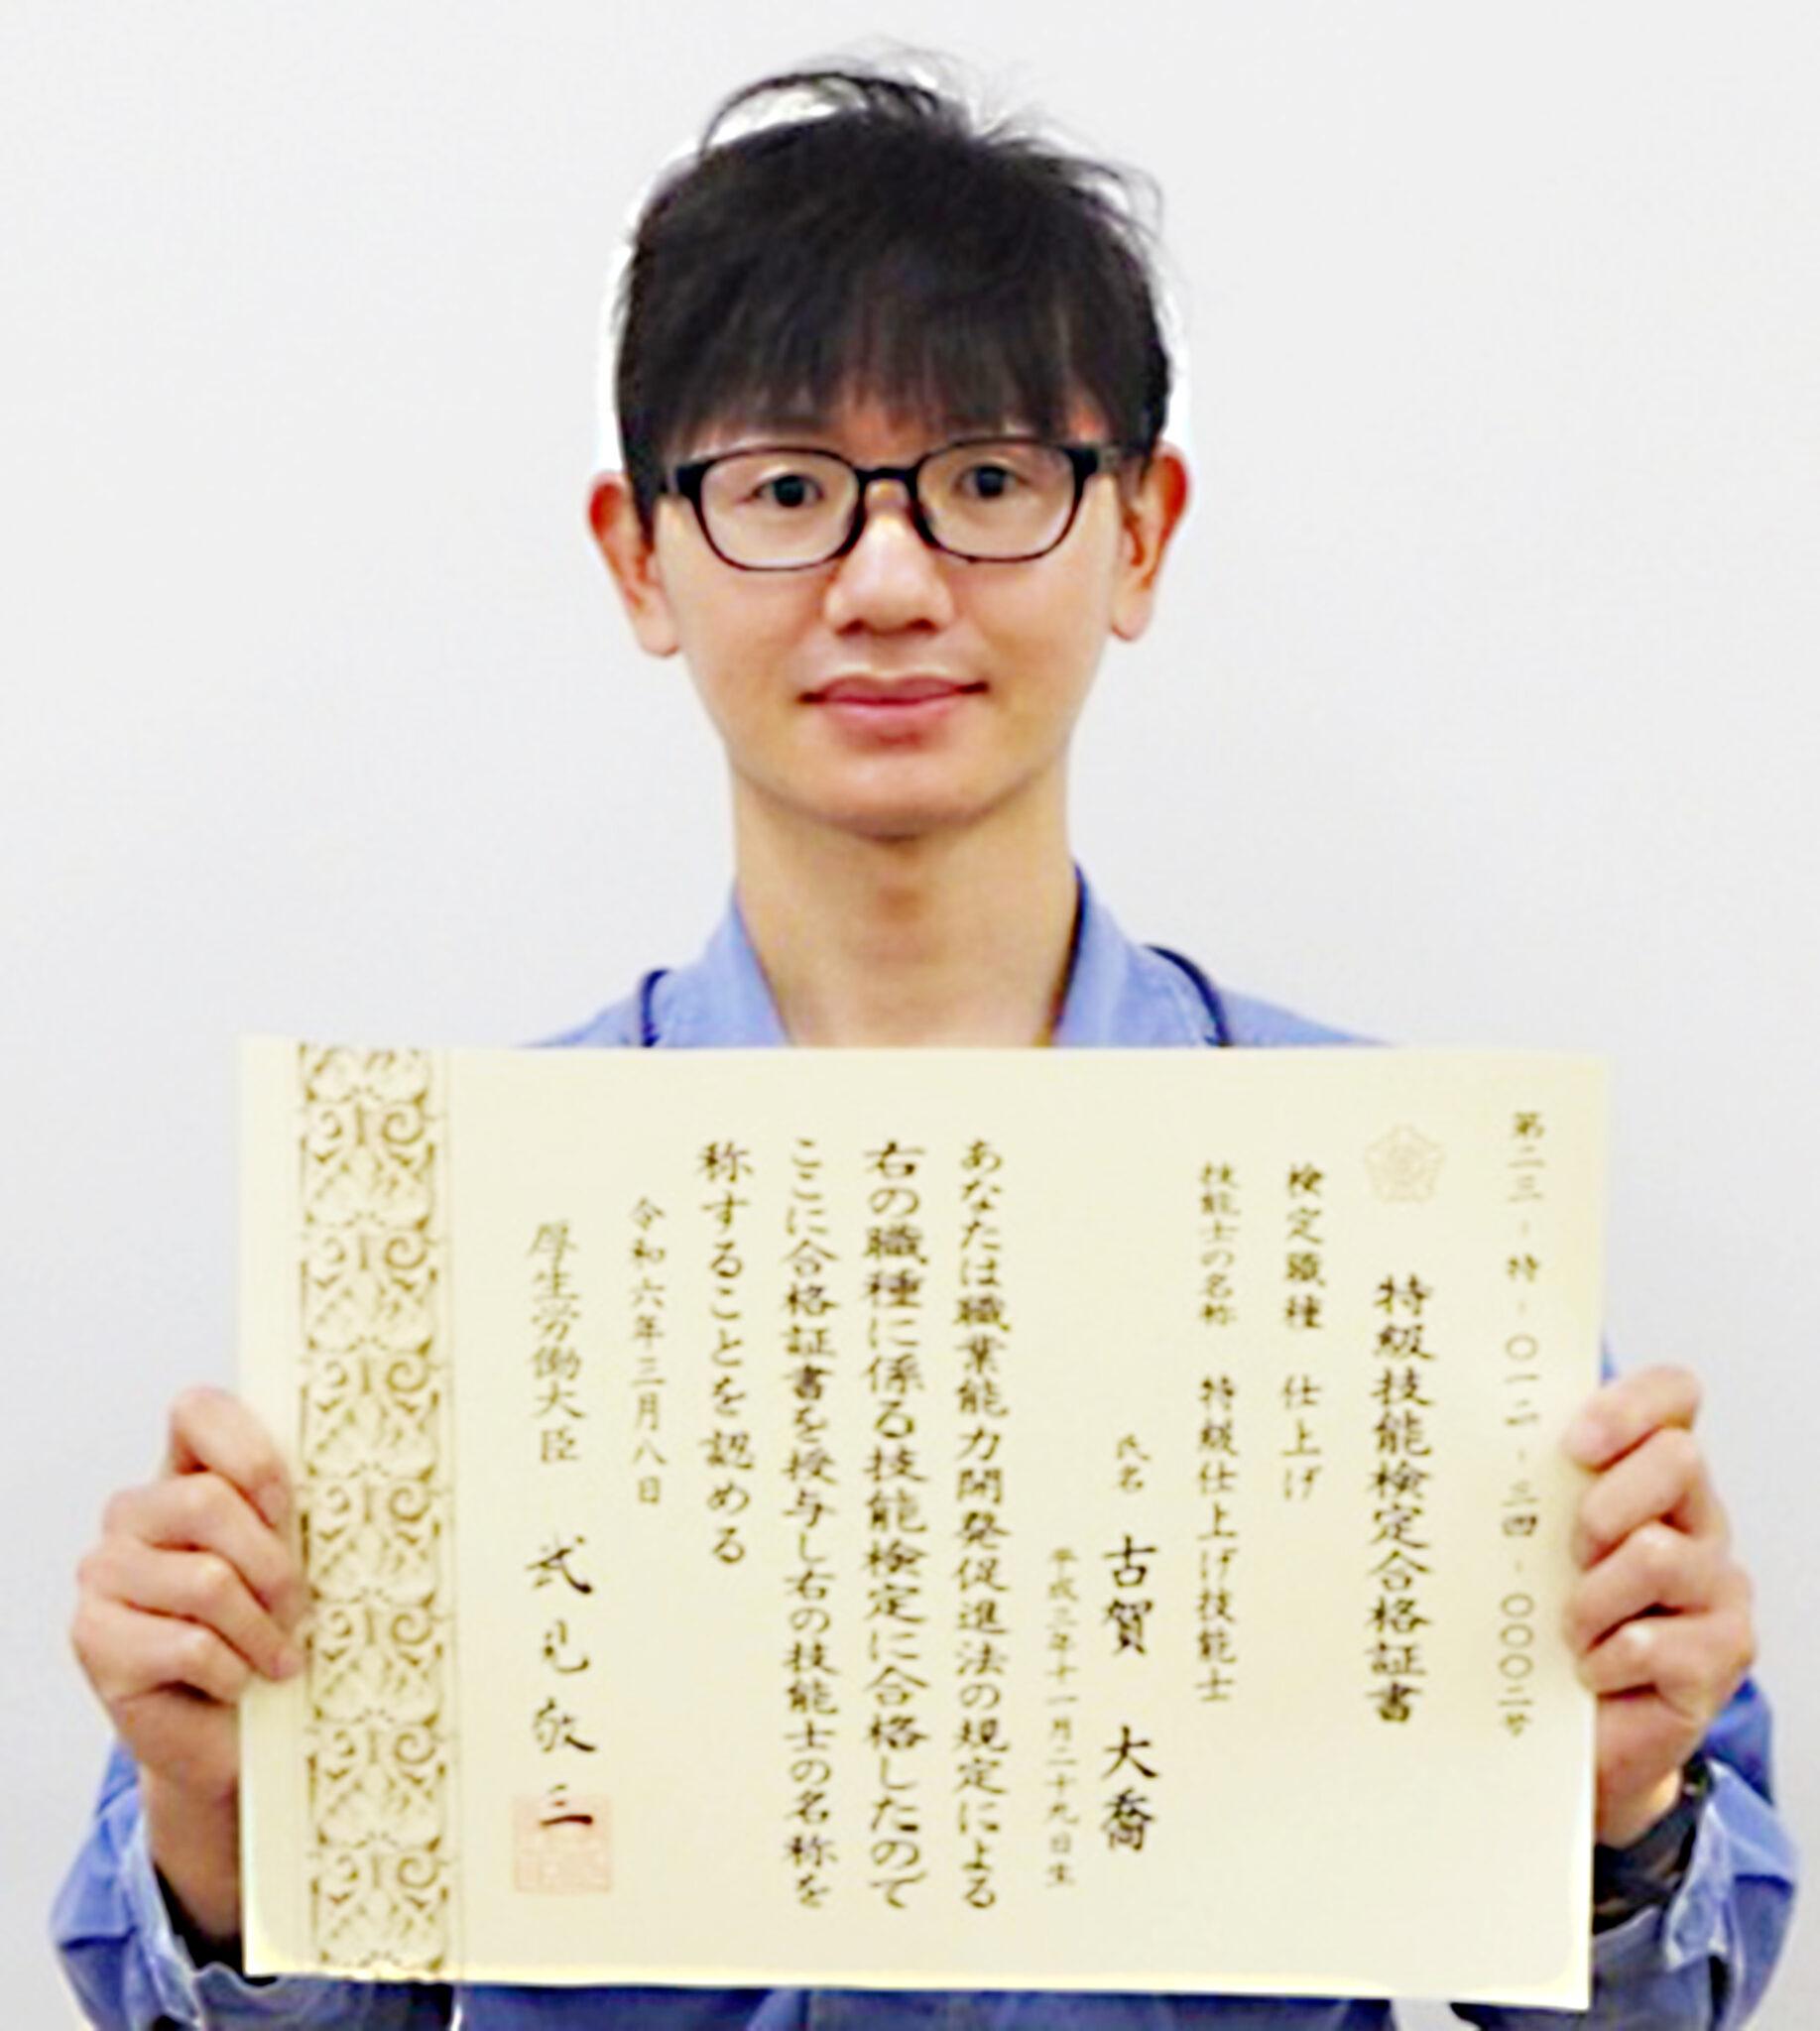 第二三-特-〇一二-三四-〇〇〇二号
特級技能検定合格証書
検定職種 仕上げ
技能士の名称 特級仕上げ技能士
氏名 古賀 大喬
平成三年十一月二十九日生
あなたは職業能力開発促進法の規定による
右の職種に係る技能検定に合格したので
ここに合格証書を授与し右の技能士の名称を
称することを認める
令和六年三月八日
厚生労働大臣 武見敬三